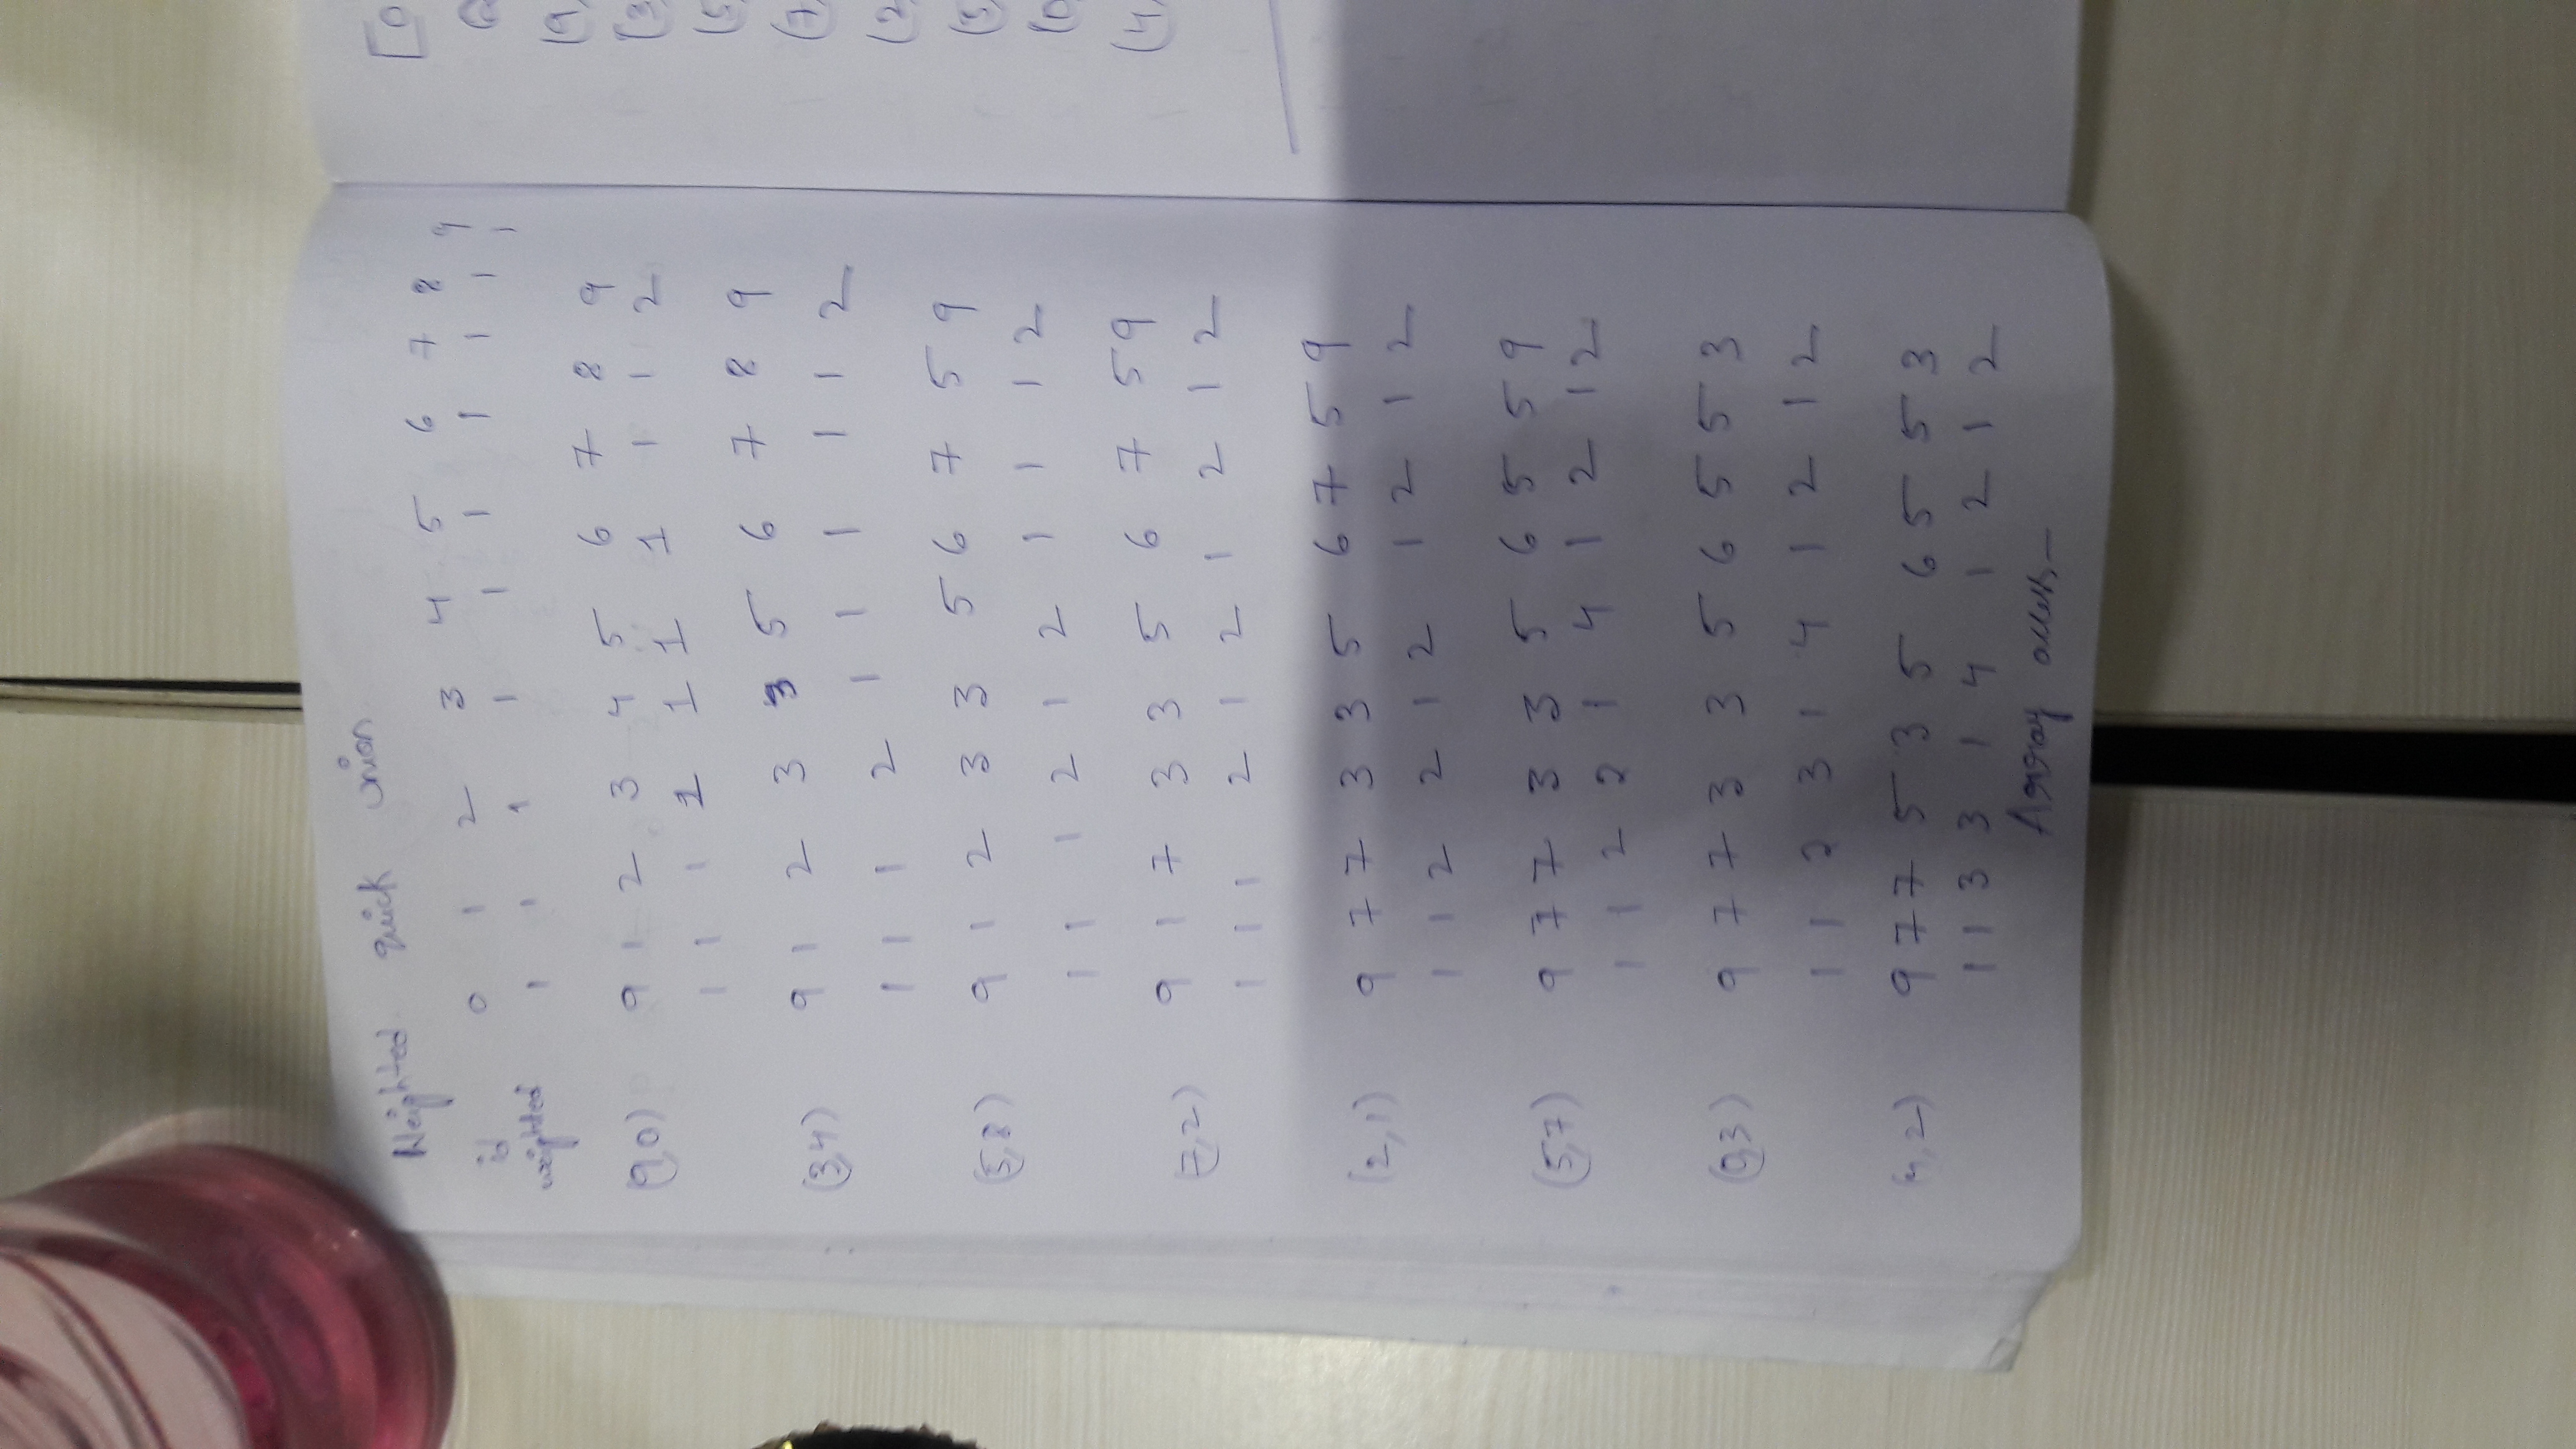 Weighted quick union
id 0 1 2 3 4 5 6 7 8 9
weighted 1 1 1 1 1 1 1 1 1 1
(9,0) 9 1 2 3 4 5 6 7 8 9
1 1 1 1 1 1 1 1 1 2
(3,4) 9 1 2 3 3 5 6 7 8 9
1 1 1 2 1 1 1 1 1 2
(5,8) 9 1 2 3 3 5 6 7 5 9
1 1 1 2 1 2 1 1 1 2
(7,2) 9 1 7 3 3 5 6 7 5 9
1 1 1 2 1 2 1 2 1 2
(2,1) 9 7 7 3 3 5 6 7 5 9
1 1 2 2 1 2 1 2 1 2
(5,7) 9 7 7 3 3 5 6 5 5 9
1 1 2 2 1 4 1 2 1 2
(0,3) 9 7 7 3 3 5 6 5 5 3
1 1 2 3 1 4 1 2 1 2
(4,2) 9 7 7 5 3 5 6 5 5 3
1 1 3 3 1 4 1 2 1 2
Array
[0
(9,
(3,
(5,
(7,
(2,
(5,
(0,
(4,